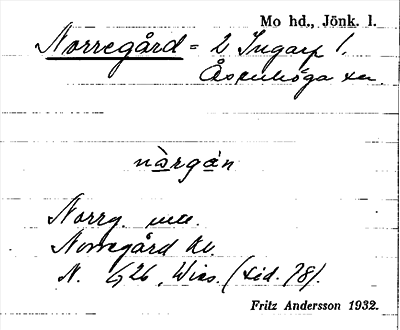 Mo hd., Jönk. l.
Norregård = 2 Ingarp 1.
Åsenhöga sn.
nàrgán
Norrg. uu.
Norregård
N. 626, Wies. (sid. 78).
Fritz Andersson 1932.